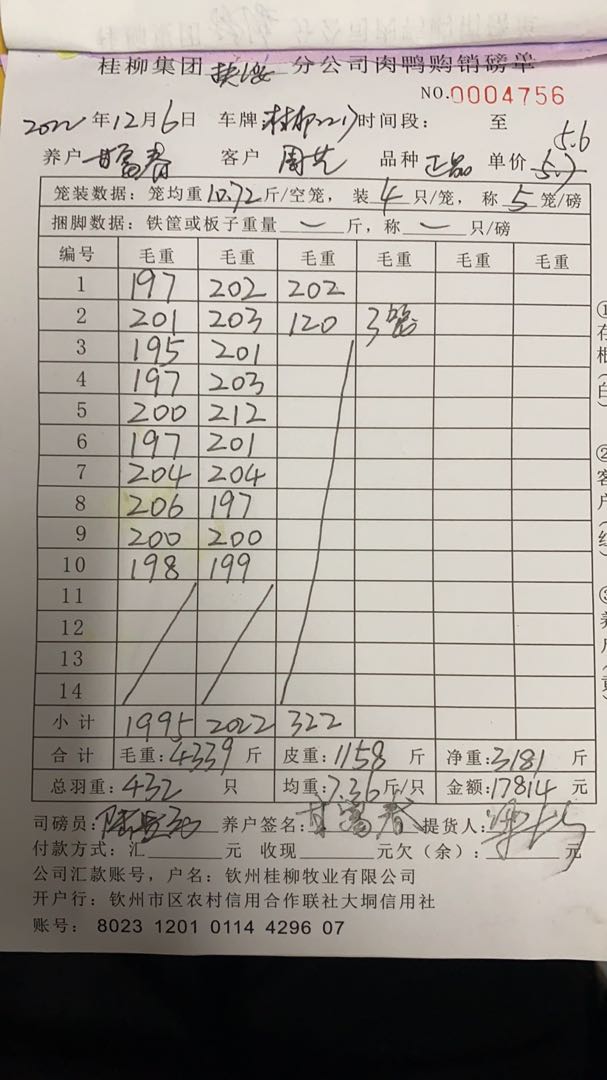 桂柳集团 分公司肉鸭购销磅单
NO.0004756
2022年12月6日 车牌 桂柳2217 时间段: 至
5.6
养户 甘富春 客户 周先 品种 正品 单价 5.7
笼装数据:笼均重10.72斤/空笼,装4只/笼,称5笼/磅
捆脚数据:铁筐或板子重量 一 斤,称 一 只/磅
编号 毛重 毛重 毛重 毛重 毛重 毛重
1 197 202 202
2 201 203 120 3笼
3 195 201
4 197 203
5 200 212
6 197 201
7 204 204
8 206 197
9 200 200
10 198 199
11
12
13
14
小计 1995 2022 322
合计 毛重:4339斤 皮重:1158斤 净重:3181斤
总羽重:432只 均重:7.36斤/只 金额:17814元
司磅员: 养户签名:甘富春 提货人:
付款方式:汇 元 收现 元欠(余): 元
公司汇款账号,户名:钦州桂柳牧业有限公司
开户行:钦州市区农村信用合作联社大垌信用社
账号: 8023 1201 0114 4296 07
①存根(白) ②客户(红) ③养户(黄)